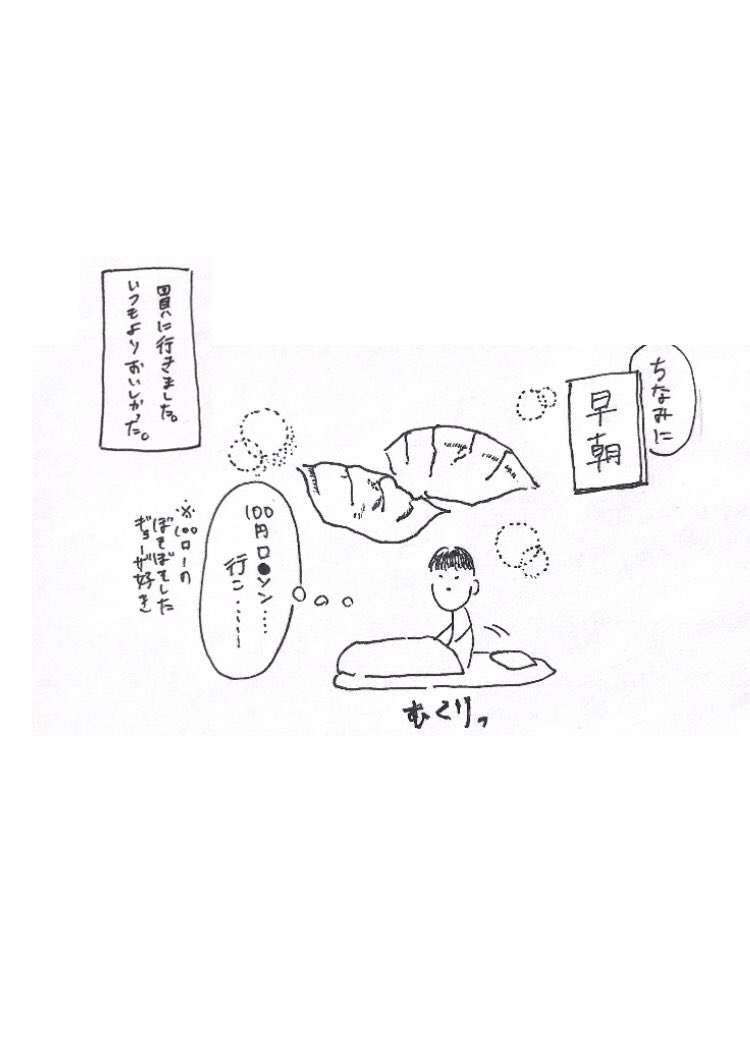 ちなみに
早朝
むくりっ
100円ロ●ソン‥‥
行こ‥‥‥
※100ローの
ぼそぼそした
ギョーザが好き
買いに行きました。
いつもよりおいしかった。